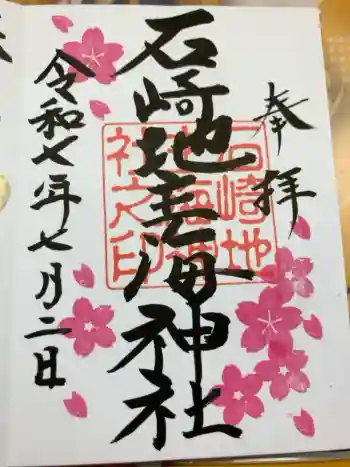 奉拝
石崎地主海神社
石崎地
主海神
社之印
令和七年七月二日